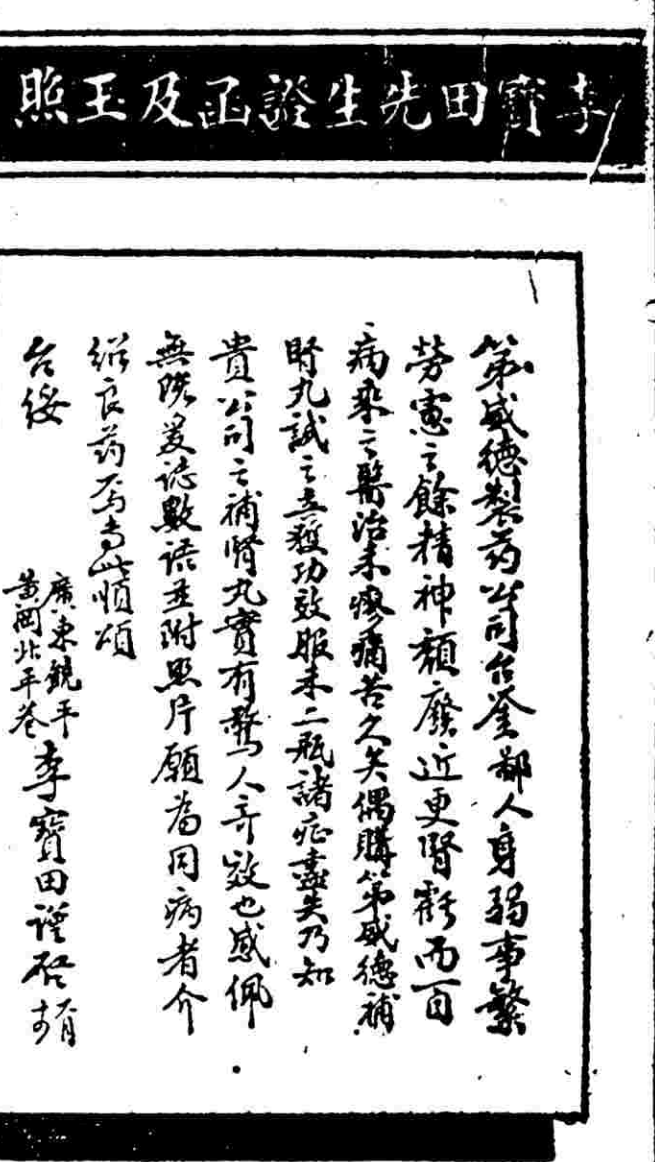 李寶田先生證函及玉照
第威德製药公司台鉴鄙人身弱事繁
劳憲之餘精神頹廢近更腎虧而百
病乘之醫治未痊痛苦久矣偶購第威德補
腎丸試之立獲功效服未二瓶諸症盡失乃知
貴公司之補腎丸實有驚人奇效也感佩
無既爰誌數語並附照片願為同病者介
紹良药焉专此順頌
台绥
廣東饒平
黃岡北平巷
李寶田謹啓